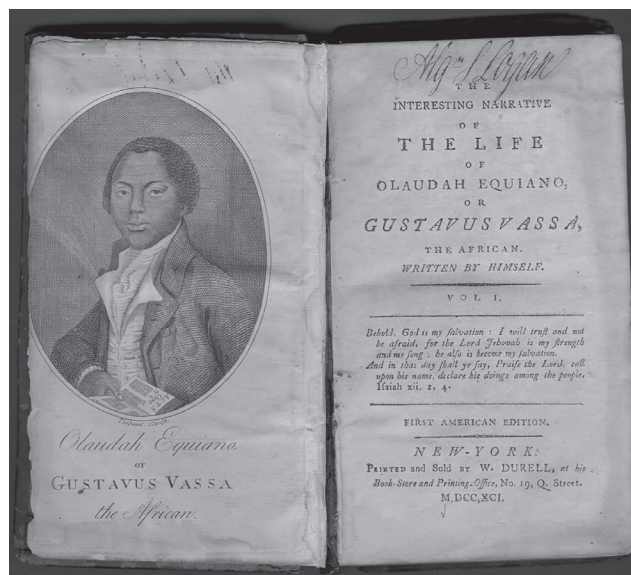 Olaudah Equiano.
or
GUSTAVUS VASSA
the African.
THE
INTERESTING NARRATIVE
OF
THE LIFE
OF
OLAUDAH EQUIANO,
OR
GUSTAVUS VASSA,
THE AFRICAN.
WRITTEN BY HIMSELF.
VOL I.
Behold, God is my ſalvation: I will truſt and not
be afraid, for the Lord Jehovah is my ſtrength
and my ſong; he alſo is become my ſalvation.
And in that day ſhall ye ſay, Praiſe the Lord, call
upon his name, declare his doings among the people,
Iſaiah xii. 2, 4.
FIRST AMERICAN EDITION.
NEW-YORK:
PRINTED and Sold BY W. DURELL, at his
Book-Store and Printing-Office, No. 19, Q. Street.
M,DCC,XCI.